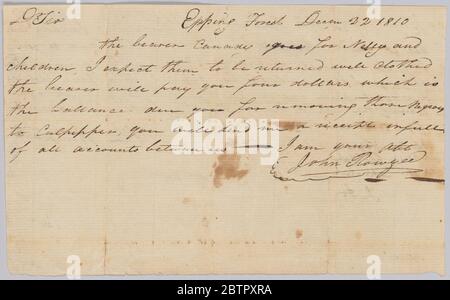 Dr Sir Epping Forest Decem 22 1810
the bearer Canada goes for Nelly and
children I expect them to be returned well clothed
the bearer will pay you four dollars which is
the ballance due you for removing those Negroes
to Culpepper, you will send me a receipt in full
of all accounts between us — I am your Obt
John Rowzee
alamy
Image ID: 2BTPXRA
www.alamy.com